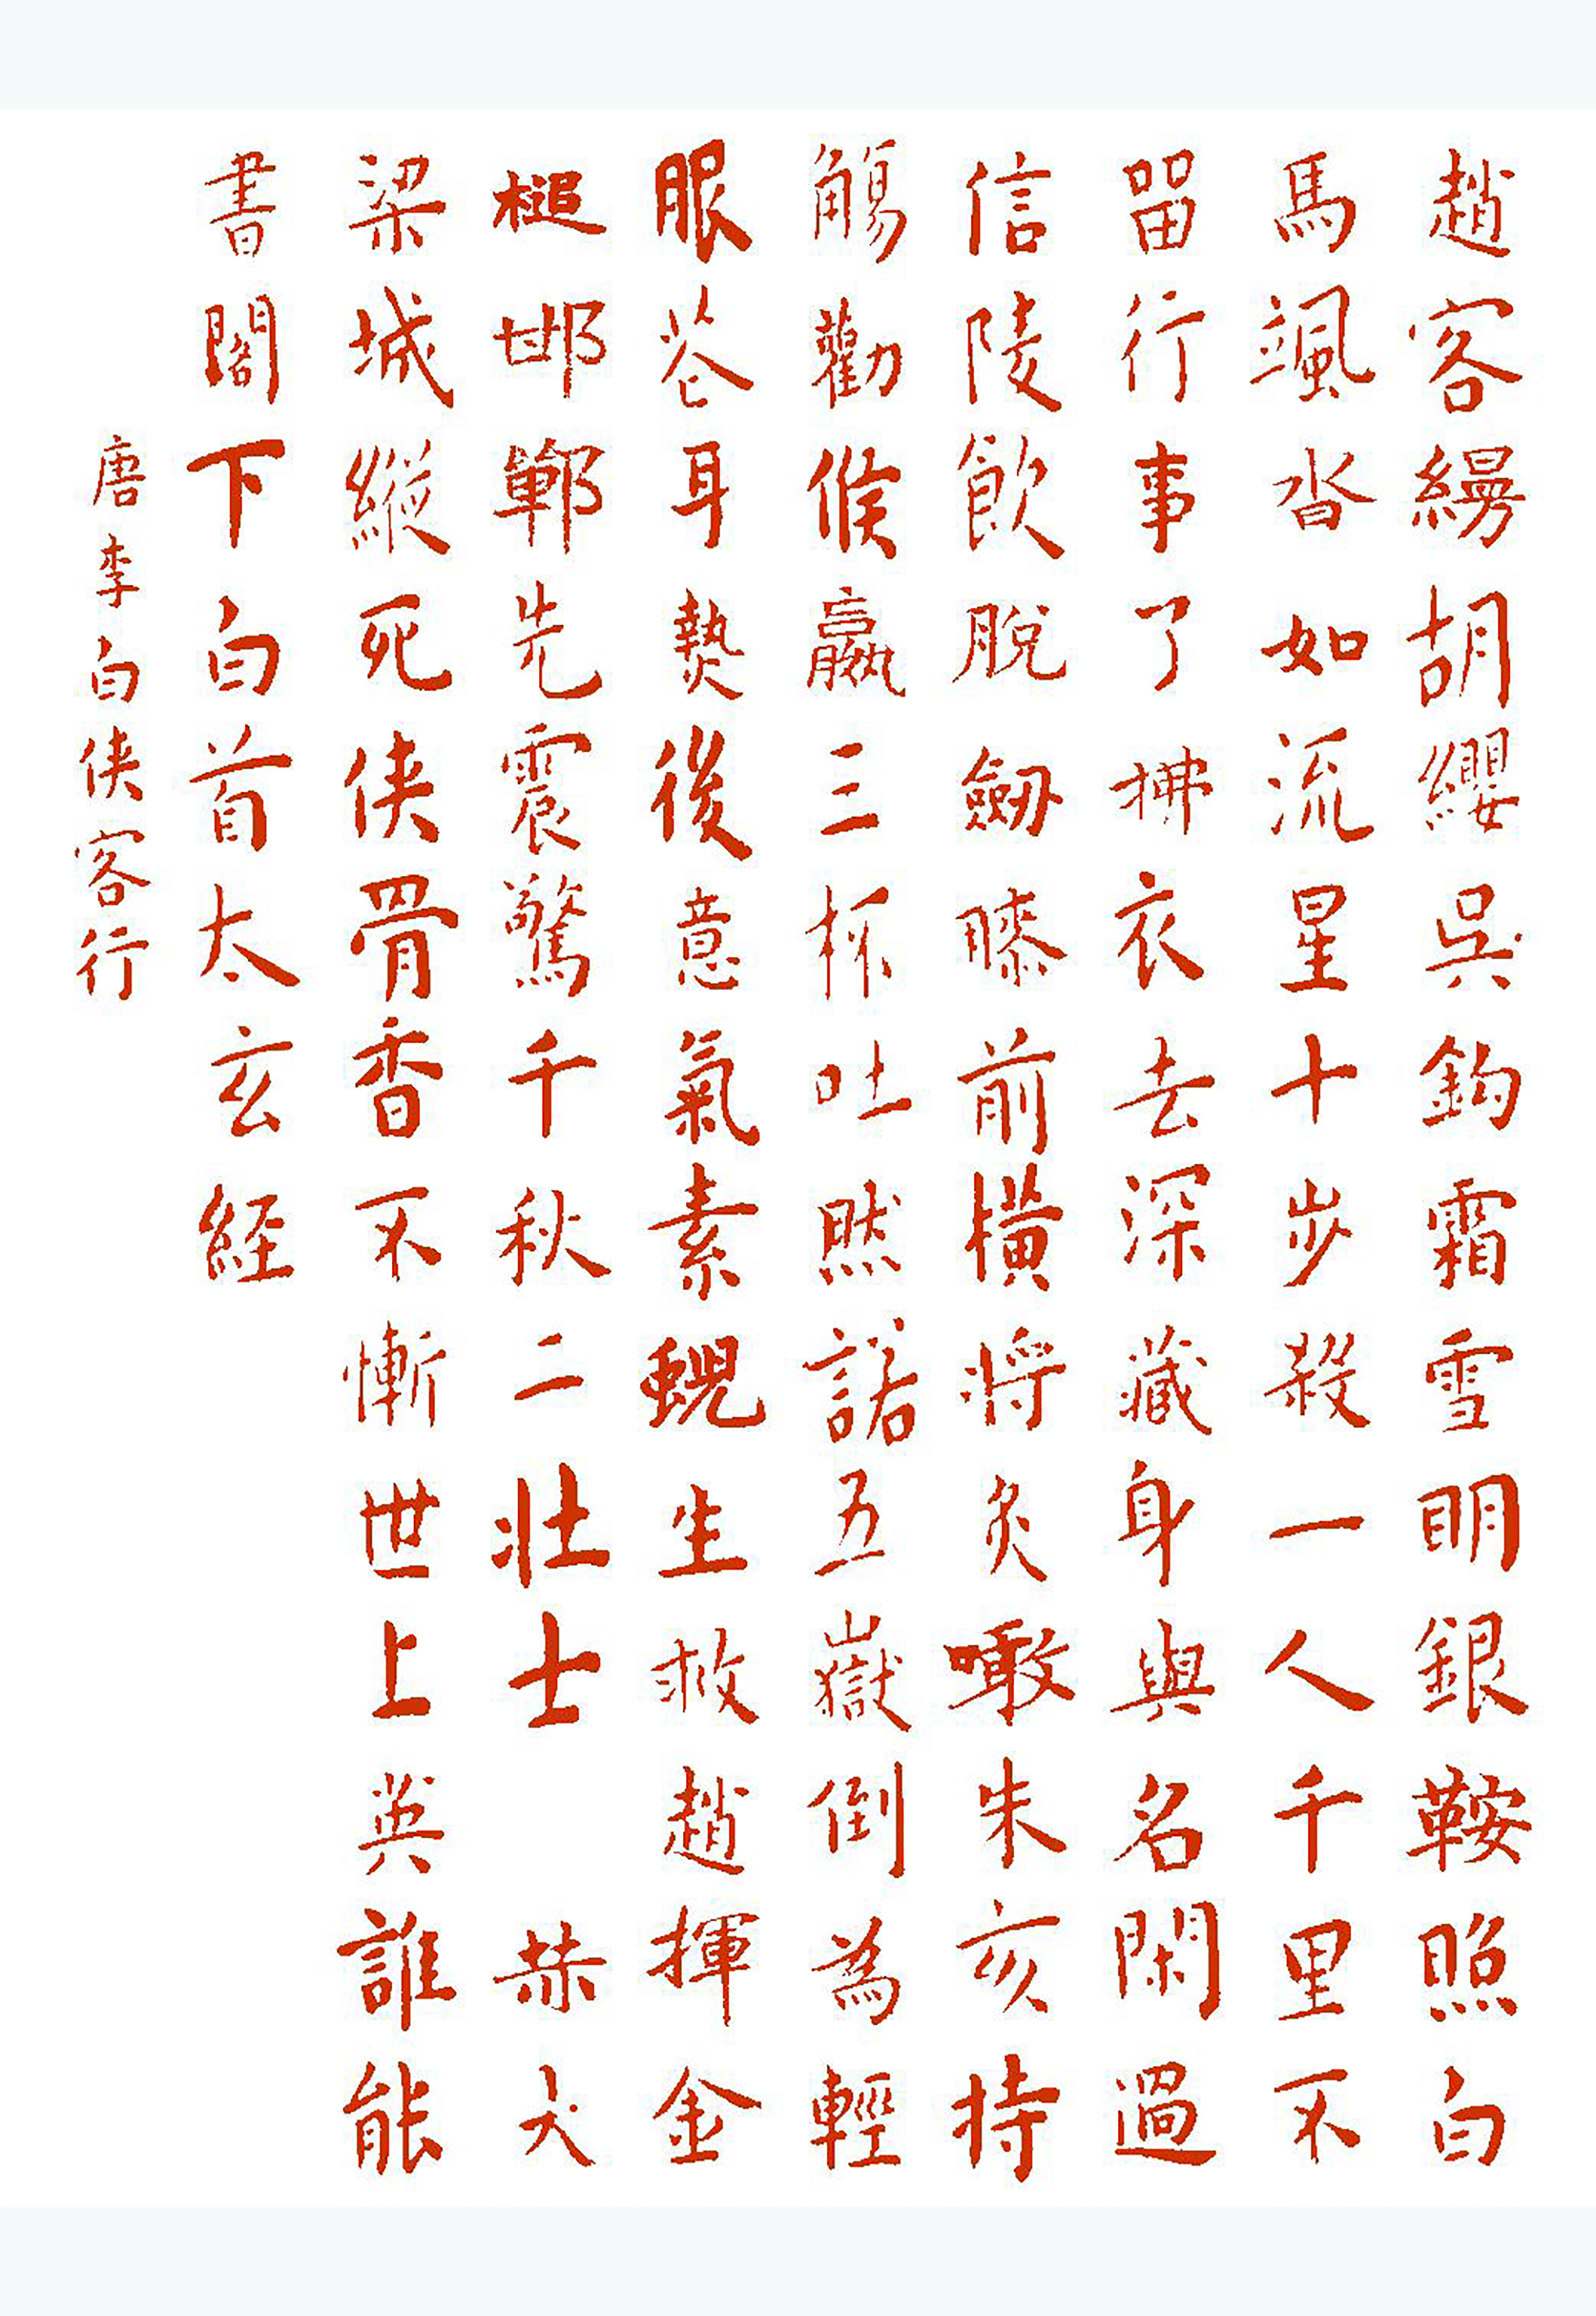 趙客縵胡纓吳鉤霜雪明銀鞍照白
馬颯沓如流星十步殺一人千里不
留行事了拂衣去深藏身與名閑過
信陵飲脫劒膝前橫將炙噉朱亥持
觴勸侯嬴三杯吐然諾五嶽倒為輕
眼花耳熱後意氣素蜺生救趙揮金
槌邯鄲先震驚千秋二壯士 赫大
梁城縱死俠骨香不慚世上英誰能
書閣下白首太玄經
唐李白俠客行